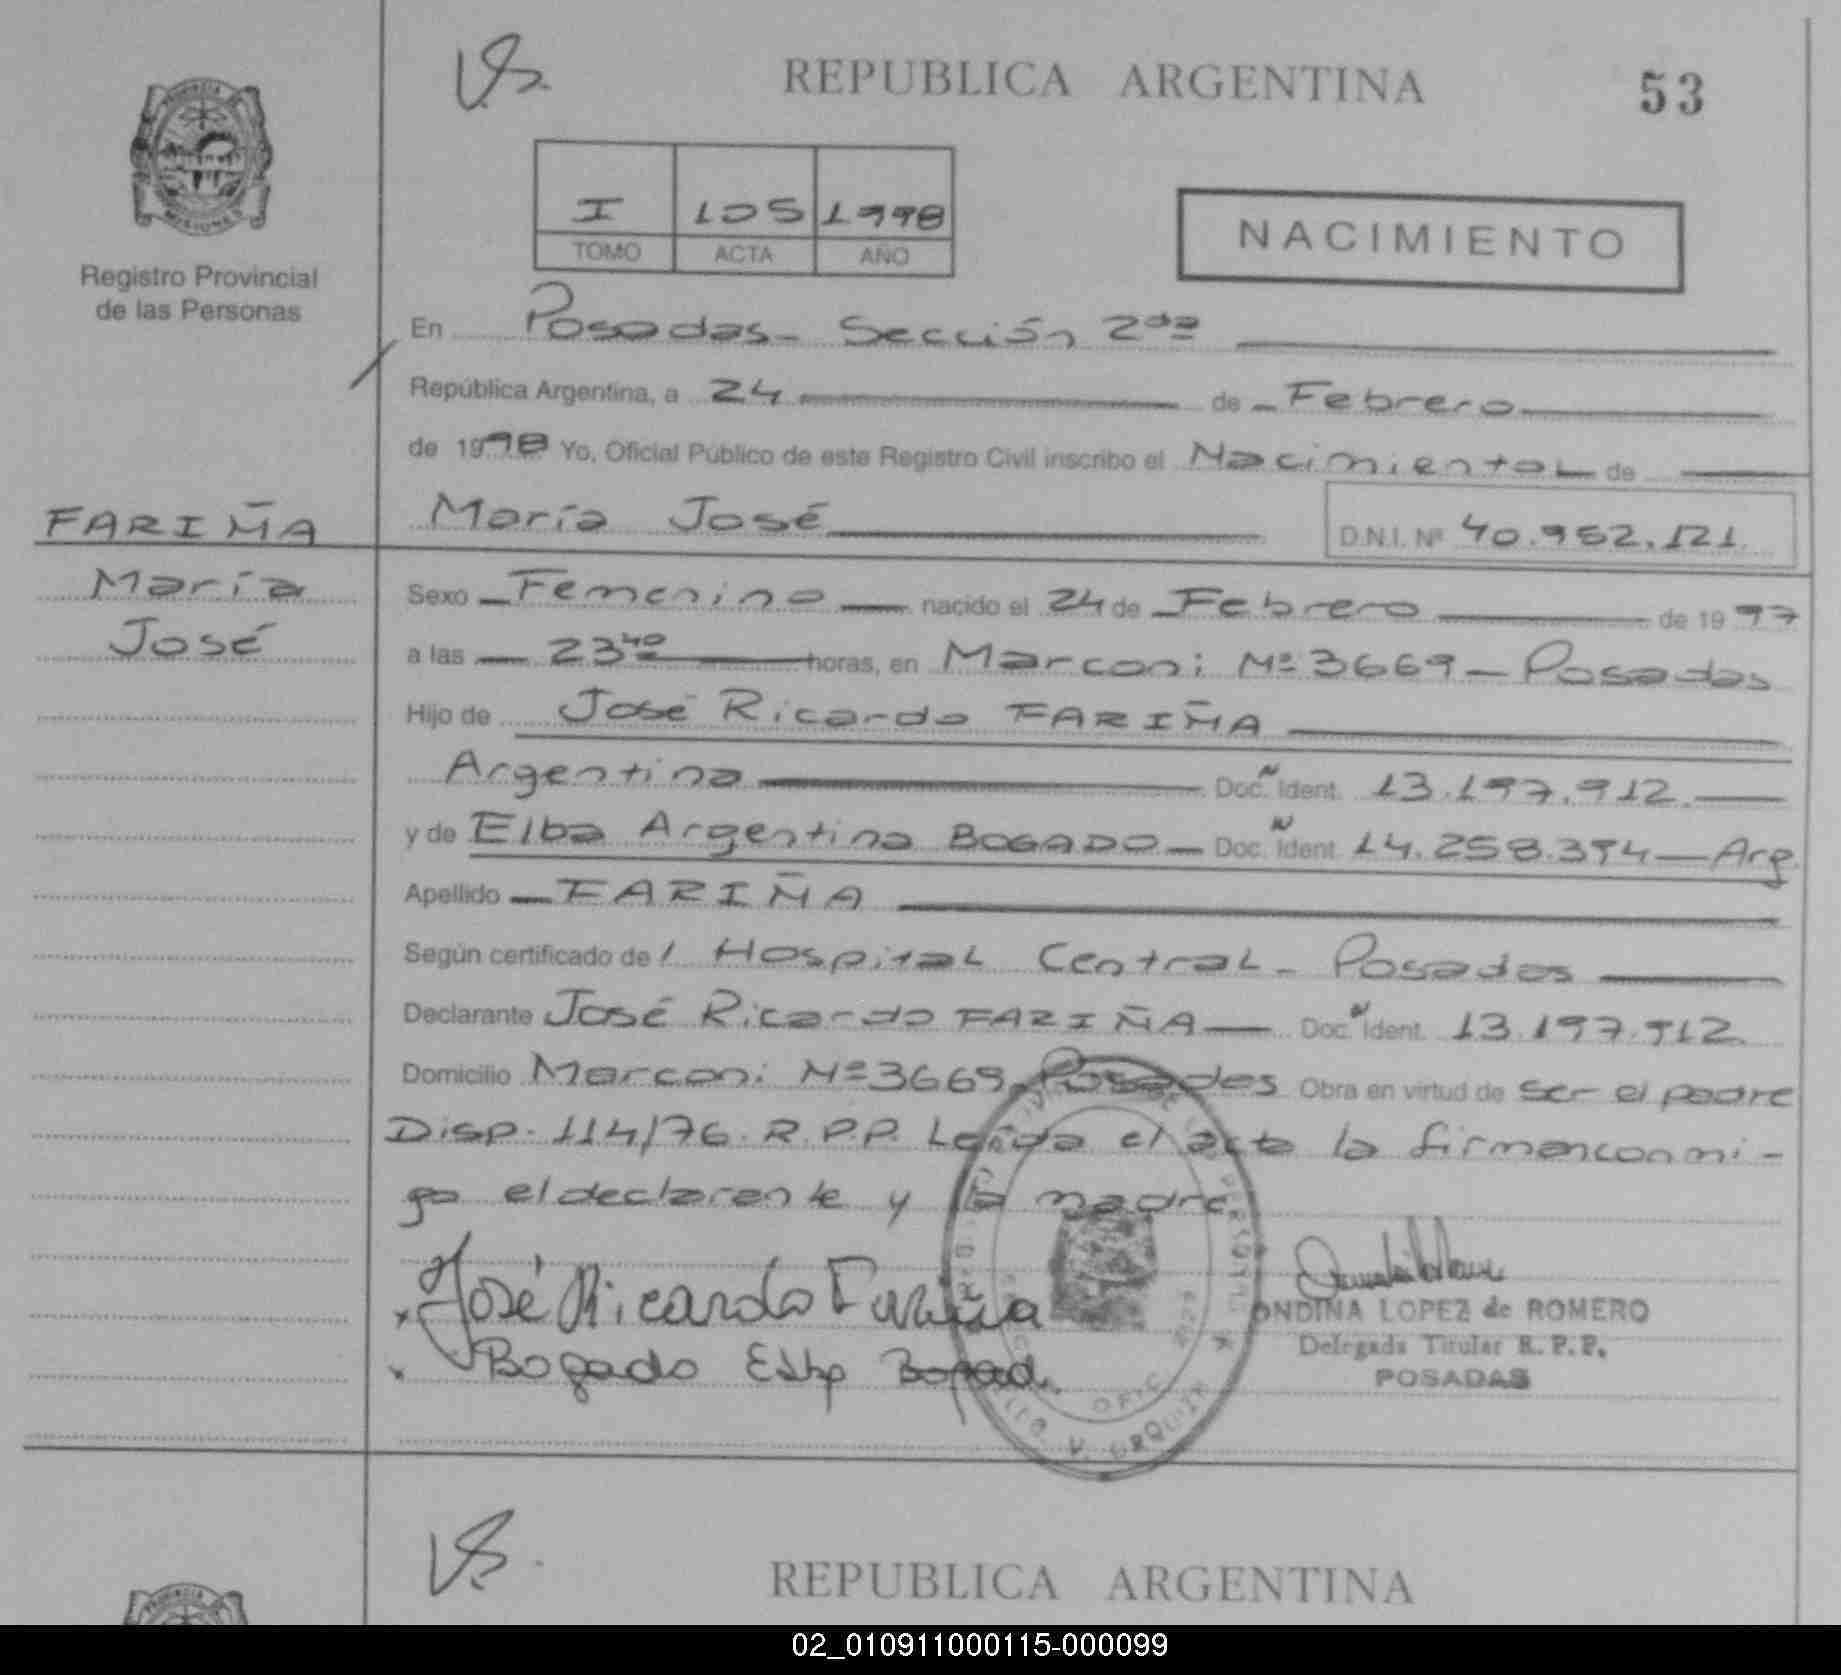 REPUBLICA ARGENTINA
53
I 105 1998
TOMO ACTA AÑO
NACIMIENTO
PROVINCIA DE MISIONES
Registro Provincial
de las Personas
En Posadas - Sección 2da
República Argentina, a 24 de Febrero
de 1998 Yo, Oficial Público de este Registro Civil inscribo el Nacimiento de
FARIÑA
María
José
María José
D.N.I. Nº 40.952.121
Sexo Femenino nacido el 24 de Febrero de 1997
a las 23 40 horas, en Marconi Nº 3669 - Posadas
Hijo de José Ricardo FARIÑA
Argentina Doc. Ident. 13.197.912.
y de Elba Argentina BOGADO - Doc. Ident. 14.258.394 - Arg.
Apellido FARIÑA
Según certificado del Hospital Central - Posadas
Declarante José Ricardo FARIÑA - Doc. Ident. 13.197.912
Domicilio Marconi Nº 3669 - Posadas Obra en virtud de ser el padre
Disp. 114/76. R.P.P. Leída el acta la firman conmi-
go el declarante y la madre
José Ricardo Fariña
Bogado Elba
ONDINA LOPEZ de ROMERO
Delegada Titular R.P.P.
POSADAS
REPUBLICA ARGENTINA
02_010911000115-000099